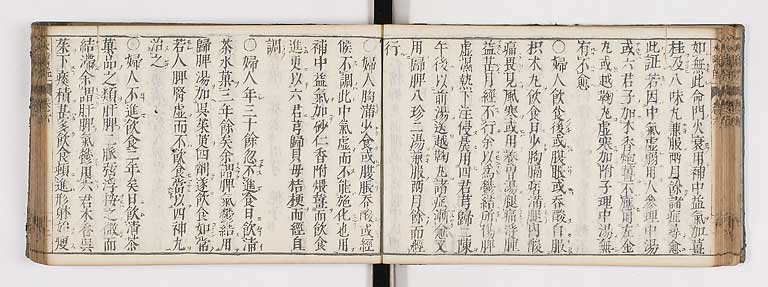 如無此命門火衰用補中益氣加薑
桂及八味丸兼服兩月餘諸症尋愈
此証若因中氣虛弱用人參理中湯
或六君子加木香炮薑不應用左金
丸或越鞠丸虛寒加附子理中湯無
有不愈
○婦人飲食後或腹脹或吞酸自服
枳朮丸飲食日少胸膈痞滿腿內酸
痛畏見風寒或用養胃湯腿痛浮腫
益甚月經不行余以為鬱結所傷脾
虛濕熱下注侵晨用四君芎歸二陳
午後以前湯送越鞠丸諸症漸愈又
用歸脾八珍二湯兼服兩月餘而經
行
○婦人胸滿少食或腹脹吞酸或經
候不調此中氣虛而不能施化也用
補中益氣加砂仁香附煨薑而飲食
進更以六君芎歸貝母桔梗而經自
調
○婦人年三十餘忽不進食日飲清
茶水菓三年餘矣余謂脾氣鬱結用
歸脾湯加吳茱萸四劑遂飲食如常
若人脾腎虛而不飲食當以四神丸
治之
○婦人不進飲食二年矣日飲清茶
菓品之類肝脾二脈弦浮按之微而
結滯余謂肝脾氣鬱用六君木香吳
茱下痰積甚多飲食頓進形體始瘦